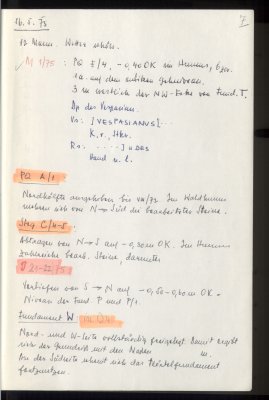 16.5.75
12 Mann. Wetter schön.
M 1/75: PQ E/4, -0,40 OK im Humus,
ca. auf dem
3 m westlich der NW-Ecke von Fund. T.
Dp. des Vespasian.
Vs: [VESPASIANUS]...
K. r.,
Rs: ....
Hand n. l.
PQ A/1
Nordhälfte ausgehoben bis Im Waldhumus
mehren sich von N→Süd die bearbeiteten Steine.
Steg C/4-5.
Abtragen von N→S auf -0,30 m OK. Im Humus
zahlreiche bearb. Steine, darunter
21-22/75
Vertiefen von S→N auf -0,50-0,60 m OK.
Niveau der Fund. P und P/1
Fundament W:
Nord- und W-Seite vollständig freigelegt. Damit ergibt
sich der Grundriß mit den Maßen m.
An der Südseite scheint sich das Fundament
fortzusetzen.